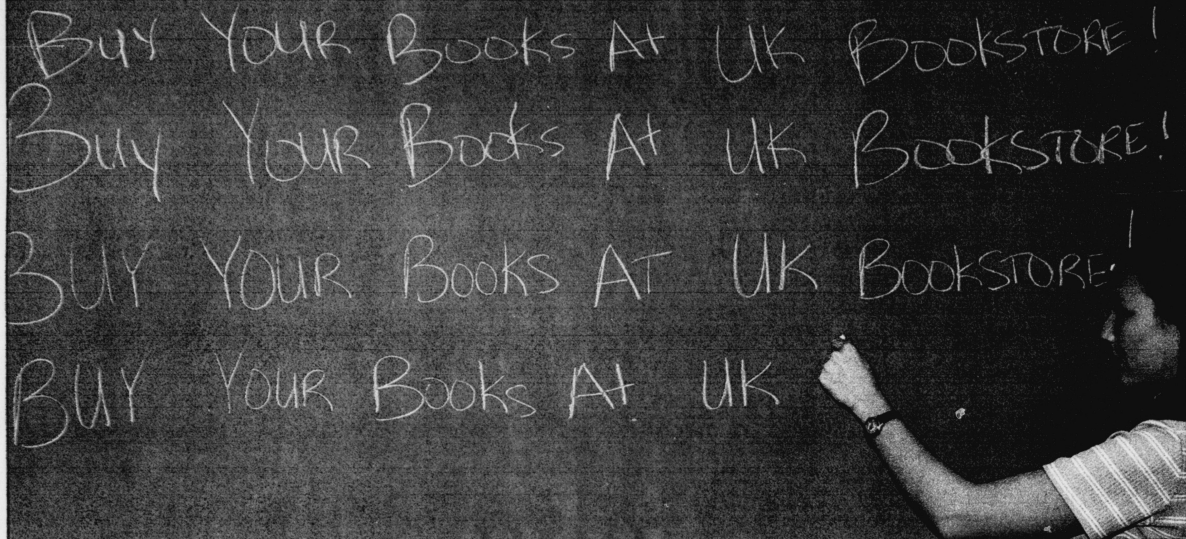 Buy YOUR Books At UK BOOKSTORE!
Buy YOUR Books At UK BOOKSTORE!
BUY YOUR BOOKS AT UK BOOKSTORE!
BUY YOUR Books At UK